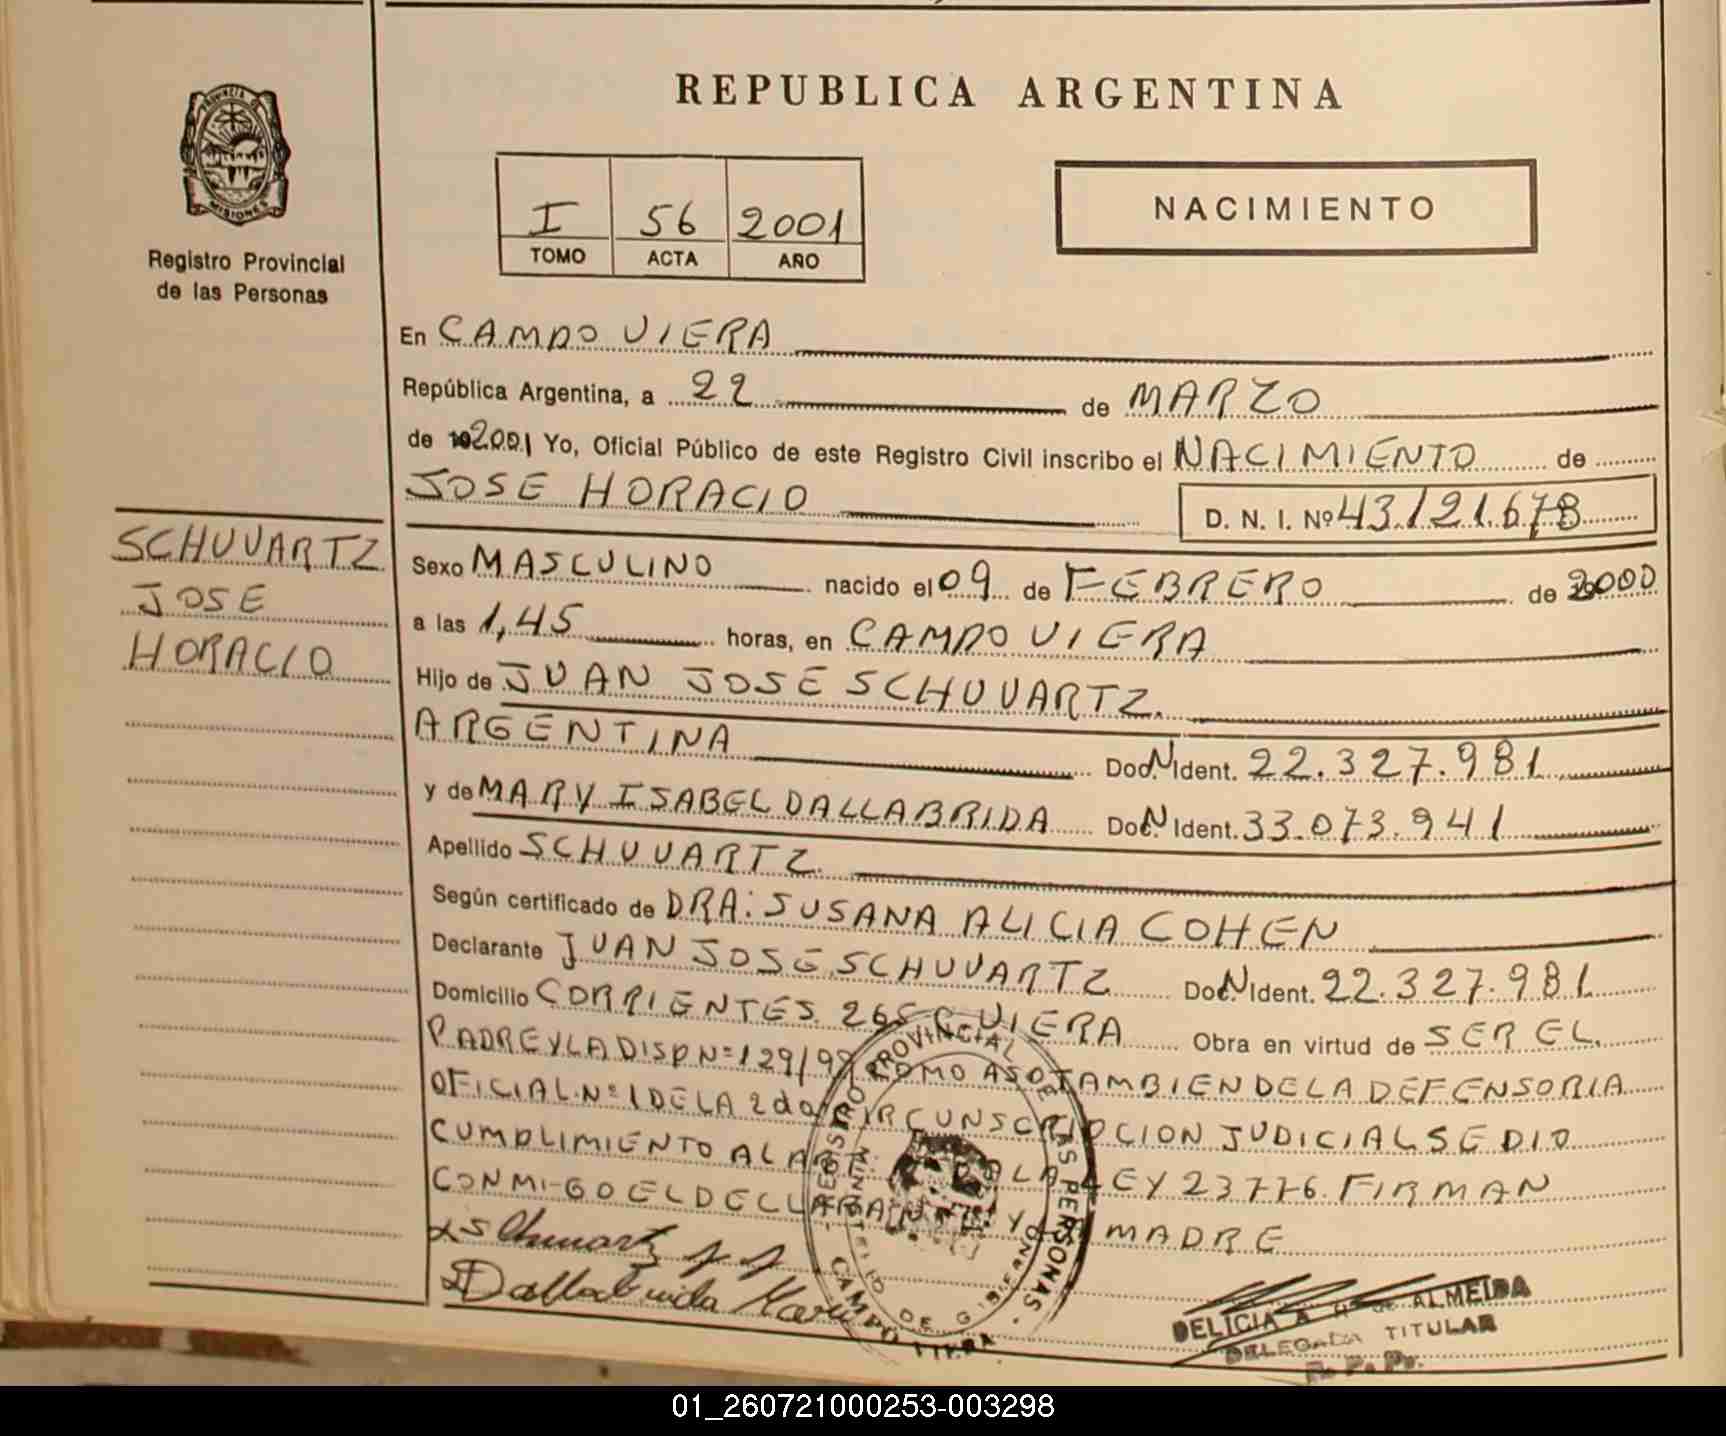 REPUBLICA ARGENTINA
PROVINCIA DE
MISIONES
Registro Provincial
de las Personas
I 56 2001
TOMO ACTA AÑO
NACIMIENTO
En CAMPO VIERA
República Argentina, a 22 de MARZO
de 2001 Yo, Oficial Público de este Registro Civil inscribo el NACIMIENTO de
JOSE HORACIO D. N. I. Nº 43.121.678
SCHUVARTZ
JOSE
HORACIO
Sexo MASCULINO nacido el 09 de FEBRERO de 2000
a las 1,45 horas, en CAMPO VIERA
Hijo de JUAN JOSE SCHUVARTZ.
ARGENTINA Doc. N Ident. 22.327.981
y de MARY ISABEL DALLABRIDA Doc. N Ident. 33.073.941
Apellido SCHUVARTZ
Según certificado de DRA: SUSANA ALICIA COHEN
Declarante JUAN JOSE SCHUVARTZ Doc. N Ident. 22.327.981
Domicilio CORRIENTES 265 C. VIERA Obra en virtud de SER EL
PADRE Y LA DISP Nº 129/99 COMO ASO TAMBIEN DE LA DEFENSORIA
OFICIAL Nº 1 DE LA 2da CIRCUNSCRIPCION JUDICIAL SE DIO
CUMPLIMIENTO AL ART. LA LEY 23776. FIRMAN
CONMI-GO EL DECLLARANTE Y LA MADRE
Dallabrida
REGISTRO PROVINCIAL DE LAS PERSONAS
MINISTERIO DE GOBIERNO
CAMPO VIERA
DELICIA A. DE ALMEIDA
DELEGADA TITULAR
R. P. P.
01_260721000253-003298